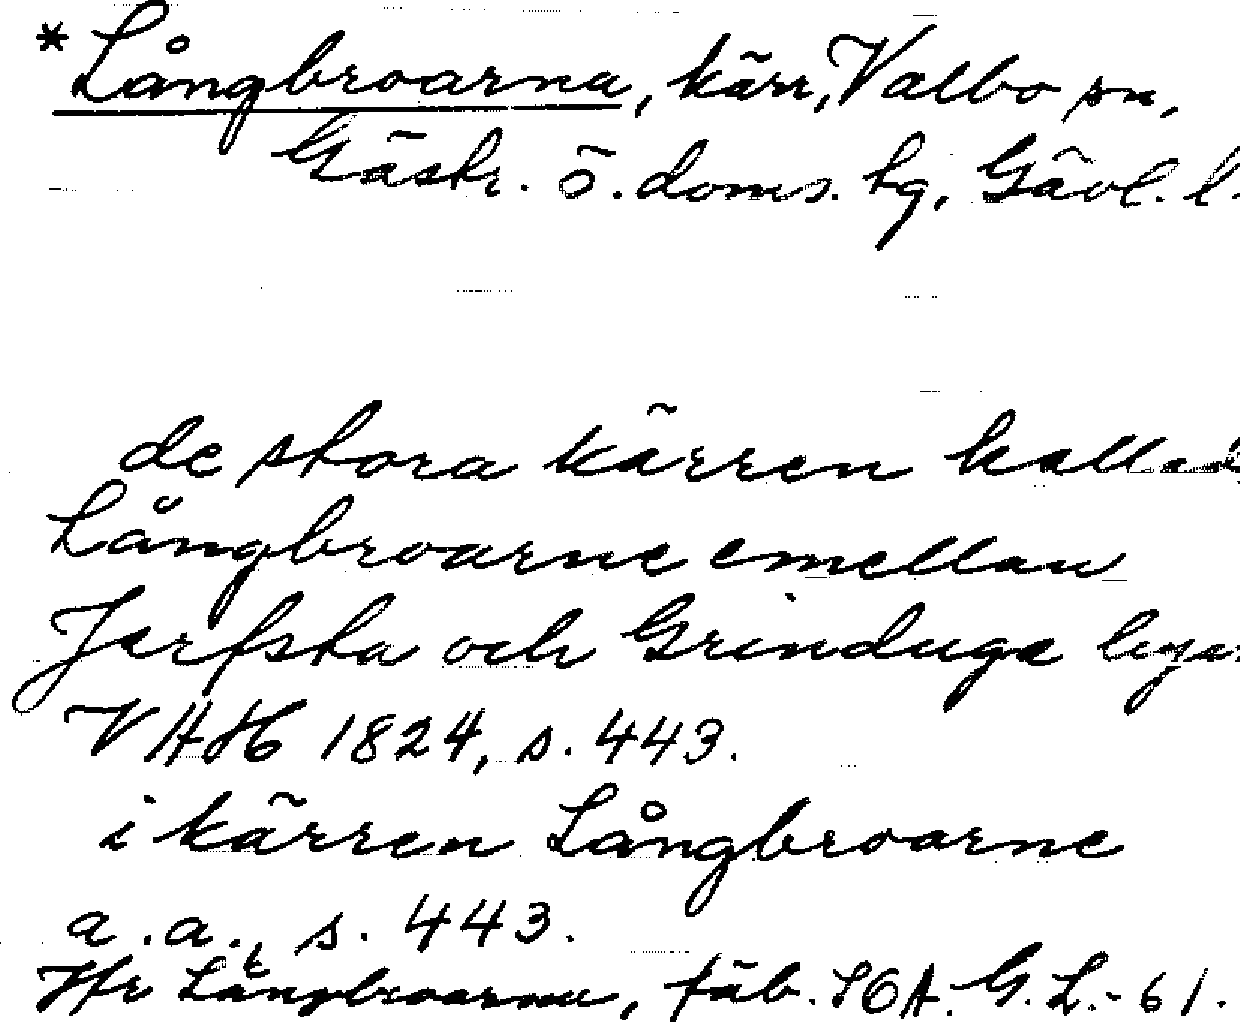 *Långbroarna, kärr, Valbo sn,
Gästr. ö. doms. hg, Gävl. l.
de stora kärren
Långbroarne emellan
Jerfsta och Grinduga
VHAH 1824, s. 443.
i kärren Långbroarne
a.a., s. 443.
Jfr Långbroarna, fäb. SOA. G.L.-61.